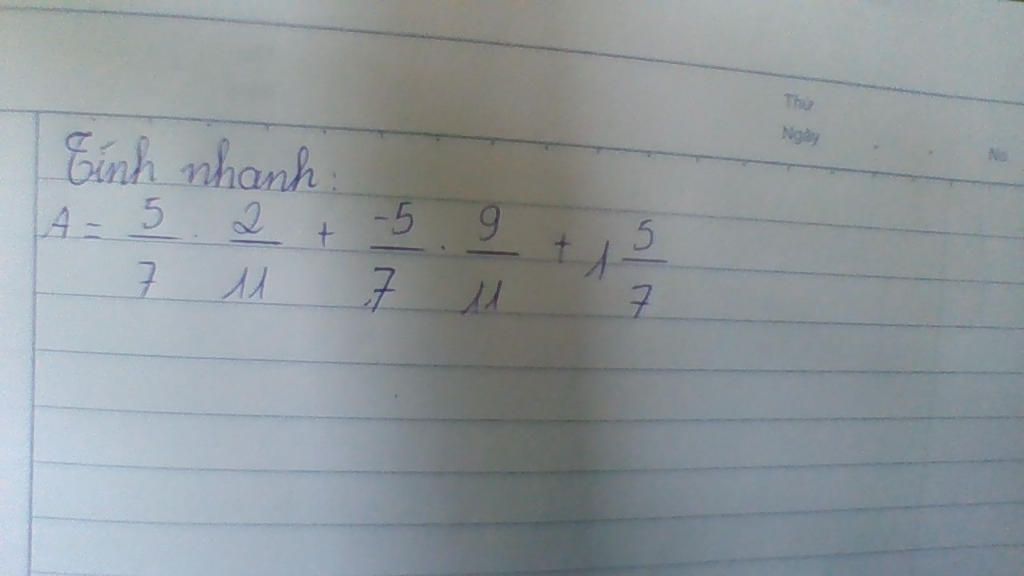 Thứ
Ngày . .
No
Tính nhanh:
A = 5/7 . 2/11 + -5/7 . 9/11 + 1 5/7